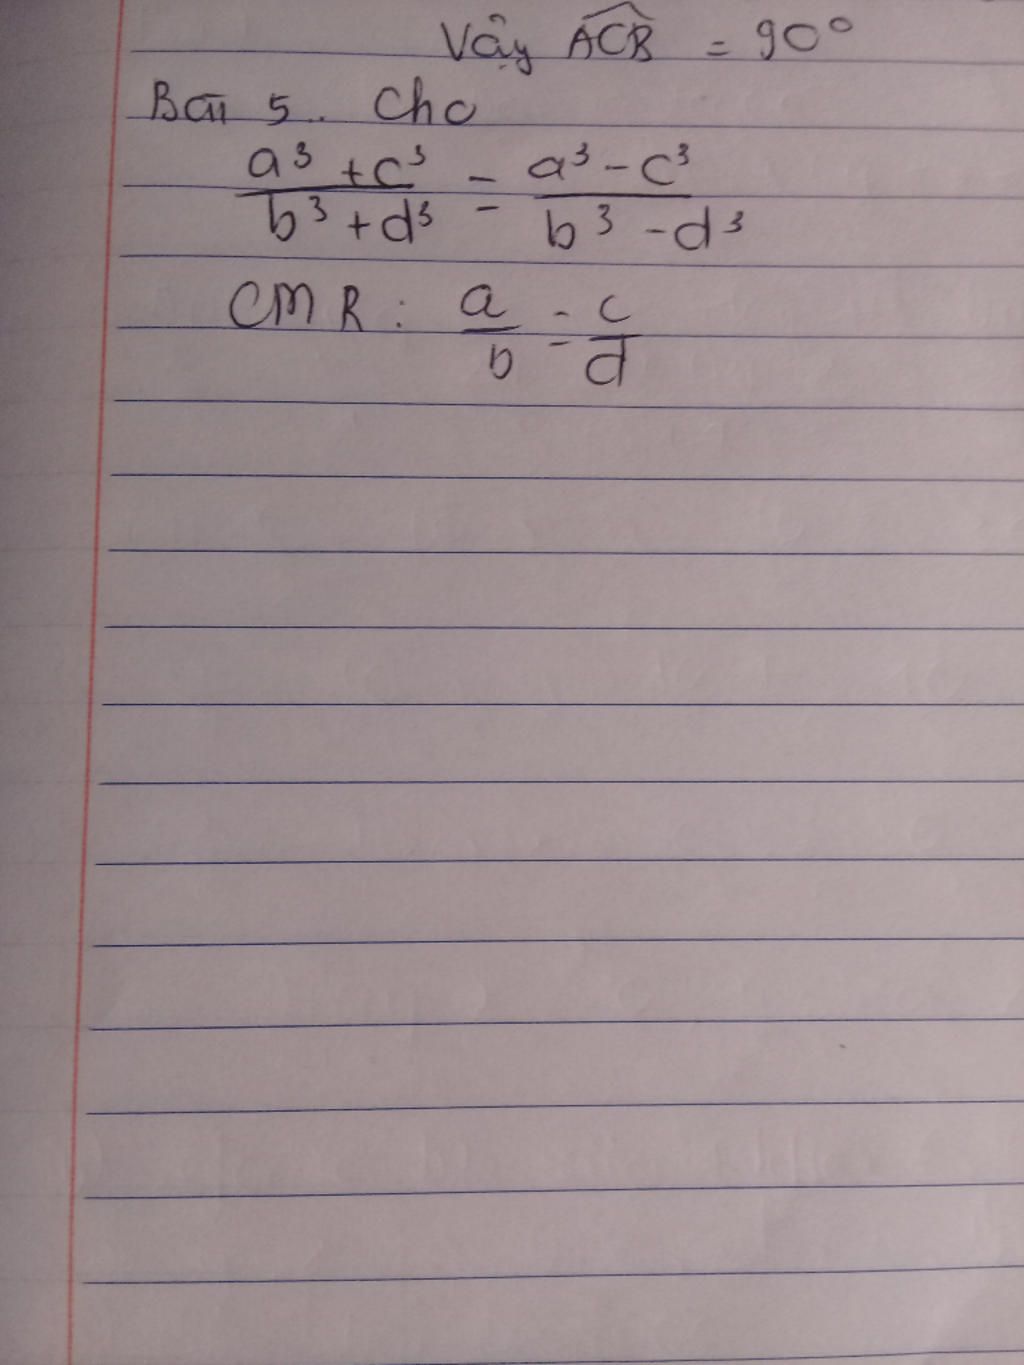 Vậy ACB = 90°
Bài 5.. Cho
a³ + c³ / b³ + d³ = a³ - c³ / b³ - d³
CMR : a / b = c / d